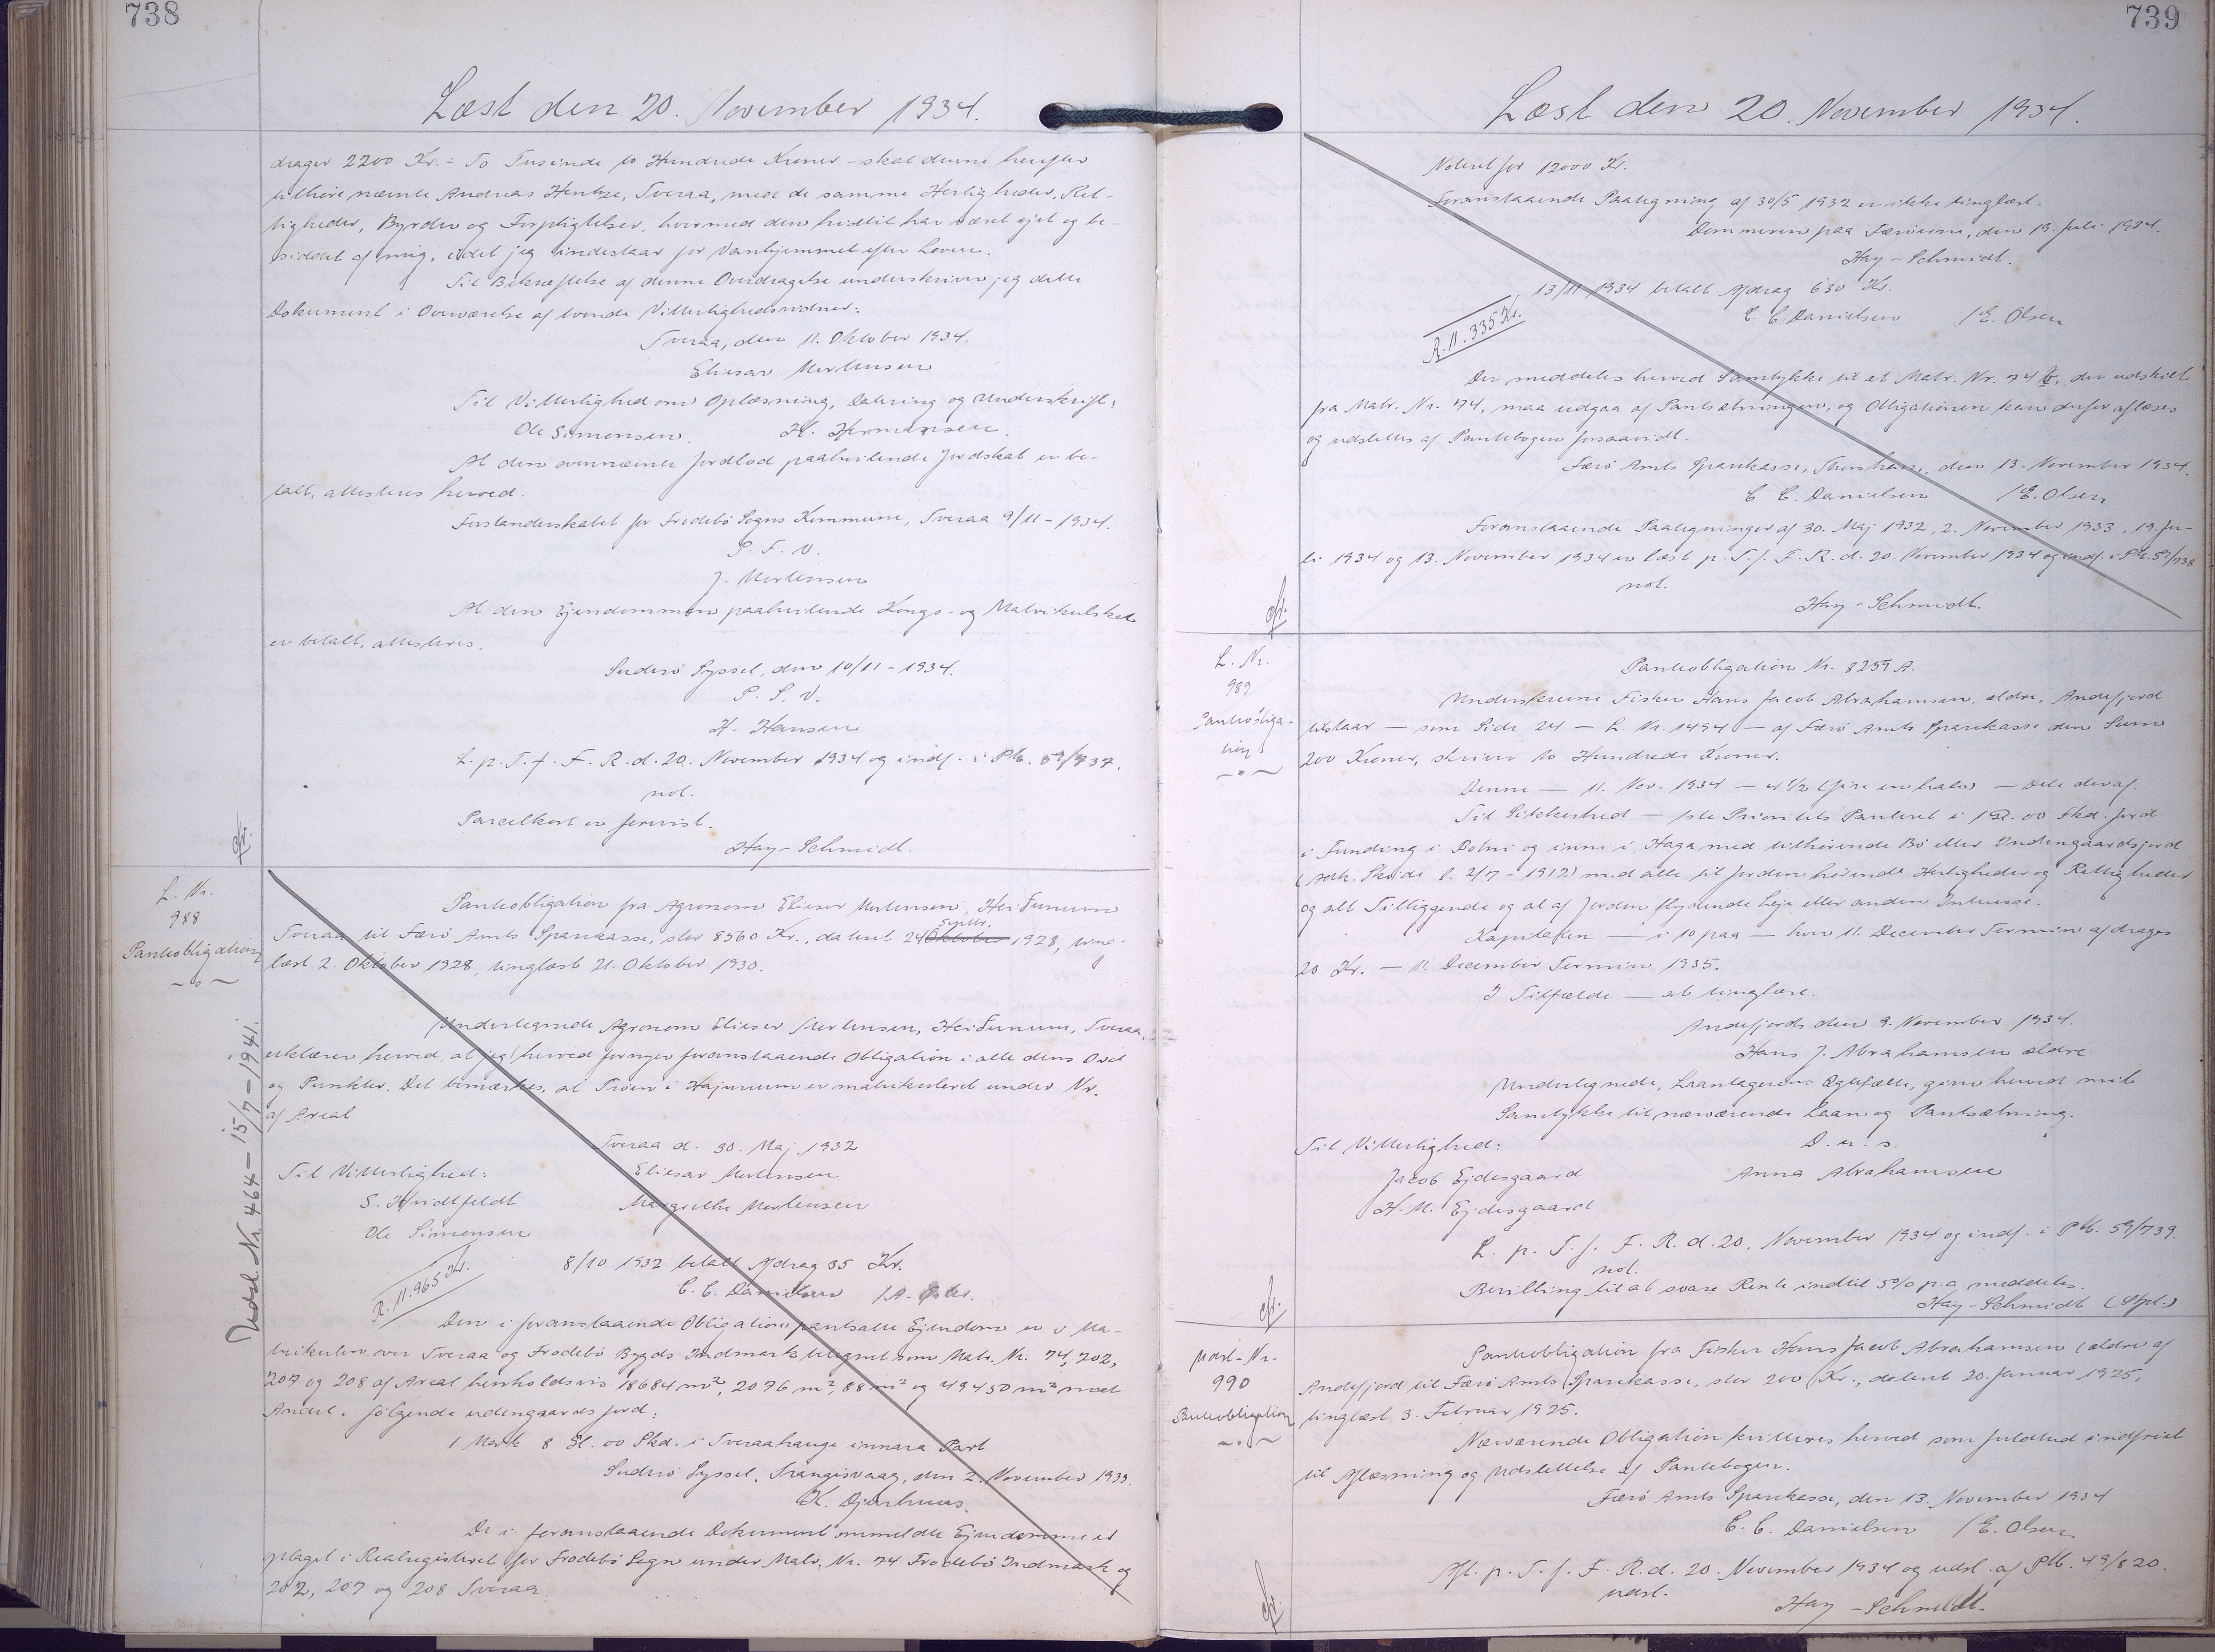 738
Læst den 20. November 1934.
drager 2200 Kr. = To Tusinde to Hundrede Kroner - skal denne herefter
tilhøre nævnte Andreas Hentze, Tveraa, med de samme Herligheder, Ret-
tigheder, Byrder og Forpligtelser, hvormed den hidtil har været ejet og be-
siddet af mig, idet jeg indestaar for Vanhjemmel efter Loven.
Til Bekræftelse af denne Overdragelse underskriver jeg dette
Dokument i Overværelse af tvende Vitterlighedsvidner.
Tveraa, den 11. Oktober 1934.
Eliesar Mortensen
Til Vitterlighed om Oplæsning, Datering og Underskrift:
Ole Simonsen. H. Hermansen.
At den ovennævnte Jordlod paahvilende Jordskat er be-
talt, attesteres herved.
Forstanderskabet for Frodebö Sogns Kommune, Tveraa 9/11 - 1934.
P. F. V.
J. Mortensen
At den Ejendommen paahvilende Kongs- og Matrikulskat
er betalt, attesteres.
Suderö Syssel, den 10/11 - 1934.
P. S. V.
H. Hansen
L. p. T. f. F. R. d. 20. November 1934 og indf. i Ptb. 59/737.
not.
Parcelkort er forevist.
Hay-Schmidt.
cfr.
L. Nr.
988
Pantobligation
Pantobligation fra Agronom Elieser Mortensen, Heiðunum
Tveraa til Færö Amts Sparekasse, stor 8560 Kr., dateret 24 Oktober Septbr. 1928, ting-
læst 2. Oktober 1928, tinglæst 21. Oktober 1930.
Undertegnede Agronom Elieser Mortensen, Heiðunum, Tveraa,
erklærer herved, at jeg herved fornyer foranstaaende Obligation i alle dens Ord
og Punkter. Det bemærkes, at Tröen i Hajunum er matrikuleret under Nr.
af Areal
Tveraa d. 30. Maj. 1932
Til Vitterlighed: Eliesar Mortensen
S. Hvidtfeldt Margrethe Mortensen
Ole Simonsen
8/10 1932 betalt Afdrag 35 Kr.
R. 11.965 Kr.
C. C. Danielsen /A.
Den i foranstaaende Obligation pantsatte Ejendom er i Ma-
trikulen over Tveraa og Frodebö Bygds Indmark betegnet som Matr. Nr. 74, 202,
207 og 208 af Areal henholdsvis 18684 m², 2076 m², 88 m² og 49450 m² med
Andel i følgende udengaards jord:
1 Mark 8 Gl. 00 Skd. i Tveraahauge innara Part
Suderö Syssel, Trangisvaag, den 2. November 1933.
K. Djurhuus.
De i foranstaaende Dokument ommeldte Ejendomme er
optaget i Realregistret for Frodebö Sogn under Matr. Nr. 74 Frodebö Indmark og
202, 207 og 208 Tveraa.
Udsl. Nr. 464 - 15/7 - 1941.
739
Læst den 20. November 1934.
Noteret for 12000 Kr.
Foranstaaende Paategning af 30/5 1932 er ikke tinglæst.
Dommeren paa Færöerne, den 19. Juli 1934.
Hay-Schmidt.
13/11 1934 betalt Afdrag 630 Kr.
R. 11.335 Kr.
C. C. Danielsen /E. Olsen
Der meddeles herved Samtykke til at Matr. Nr. 74 b, der udskilt
fra Matr. Nr. 74, maa udgaa af Pantsætningen, og Obligationen kan derfor aflæses
og udslettes af Pantebogen forsaavidt.
Færö Amts Sparekasse, Thorshavn, den 13. November 1934.
C. C. Danielsen /E. Olsen
Foranstaaende Paategninger af 30. Maj 1932, 2. November 1933, 19. Ju-
li 1934 og 13. November 1934 er læst p. T. f. F. R. d. 20. November 1934 og indf. i Ptb. 59/738
not.
Hay-Schmidt.
cfr.
L. Nr.
989
Pantobliga-
tion
Pantobligation Nr. 8259 A.
Underskrevne Fisker Hans Jacob Abrahamsen, ældre, Andefjord
tilstaar — som Side 24 — L. Nr. 1494 — af Færö Amts Sparekasse den Sum
200 Kroner, skriver to Hundrede Kroner.
Denne — 11. Nov. 1934 — 4 1/2 (fire en halv) — Dele deraf.
Til Sikkerhed — 1ste Prioritets Panteret i 1 Gl. 00 Skd. Jord
i Funding i Botni og inni i Haga med tilhørende Bö eller Indengaardsjord
(adk. Skøde l. 2/7 - 1912) med alle til Jorden hørende Herligheder og Rettigheder
og alt Tilliggende og al af Jorden flydende Leje eller anden Interesse.
Kapitalen — i 10 paa — hver 11. December Termin afdrages
20 Kr. — 11. December Termin 1935.
I Tilfælde — at tinglæse.
Andefjord, den 9. November 1934.
Hans J. Abrahamsen ældre
Undertegnede, Laantagerens Ægtefælle, giver herved mit
Samtykke til nærværende Laan og Pantsætning.
Til Vitterlighed: D. u. s.
Jacob Ejdesgaard Anna Abrahamsen
H. M. Ejdesgaard
L. p. T. f. F. R. d. 20. November 1934 og indf. i Ptb. 59/739.
not.
Bevilling til at svare Rente indtil 5% p. a. meddeles.
Hay-Schmidt
cfr.
Udsl-Nr.
990
Pantobligation
Pantobligation fra Fisker Hans Jacob Abrahamsen (ældre af
Andefjord til Færö Amts Sparekasse, stor 200 Kr., dateret 20. Januar 1925,
tinglæst 3. Februar 1925.
Nærværende Obligation kvitteres herved som fuldtud indfriet
til Aflæsning og Udslettelse af Pantebogen.
Færö Amts Sparekasse, den 13. November 1934
C. C. Danielsen /E. Olsen
Afl. p. T. f. F. R. d. 20. November 1934 og udsl. af Ptb. 49/820.
udsl.
Hay-Schmidt.
cfr.